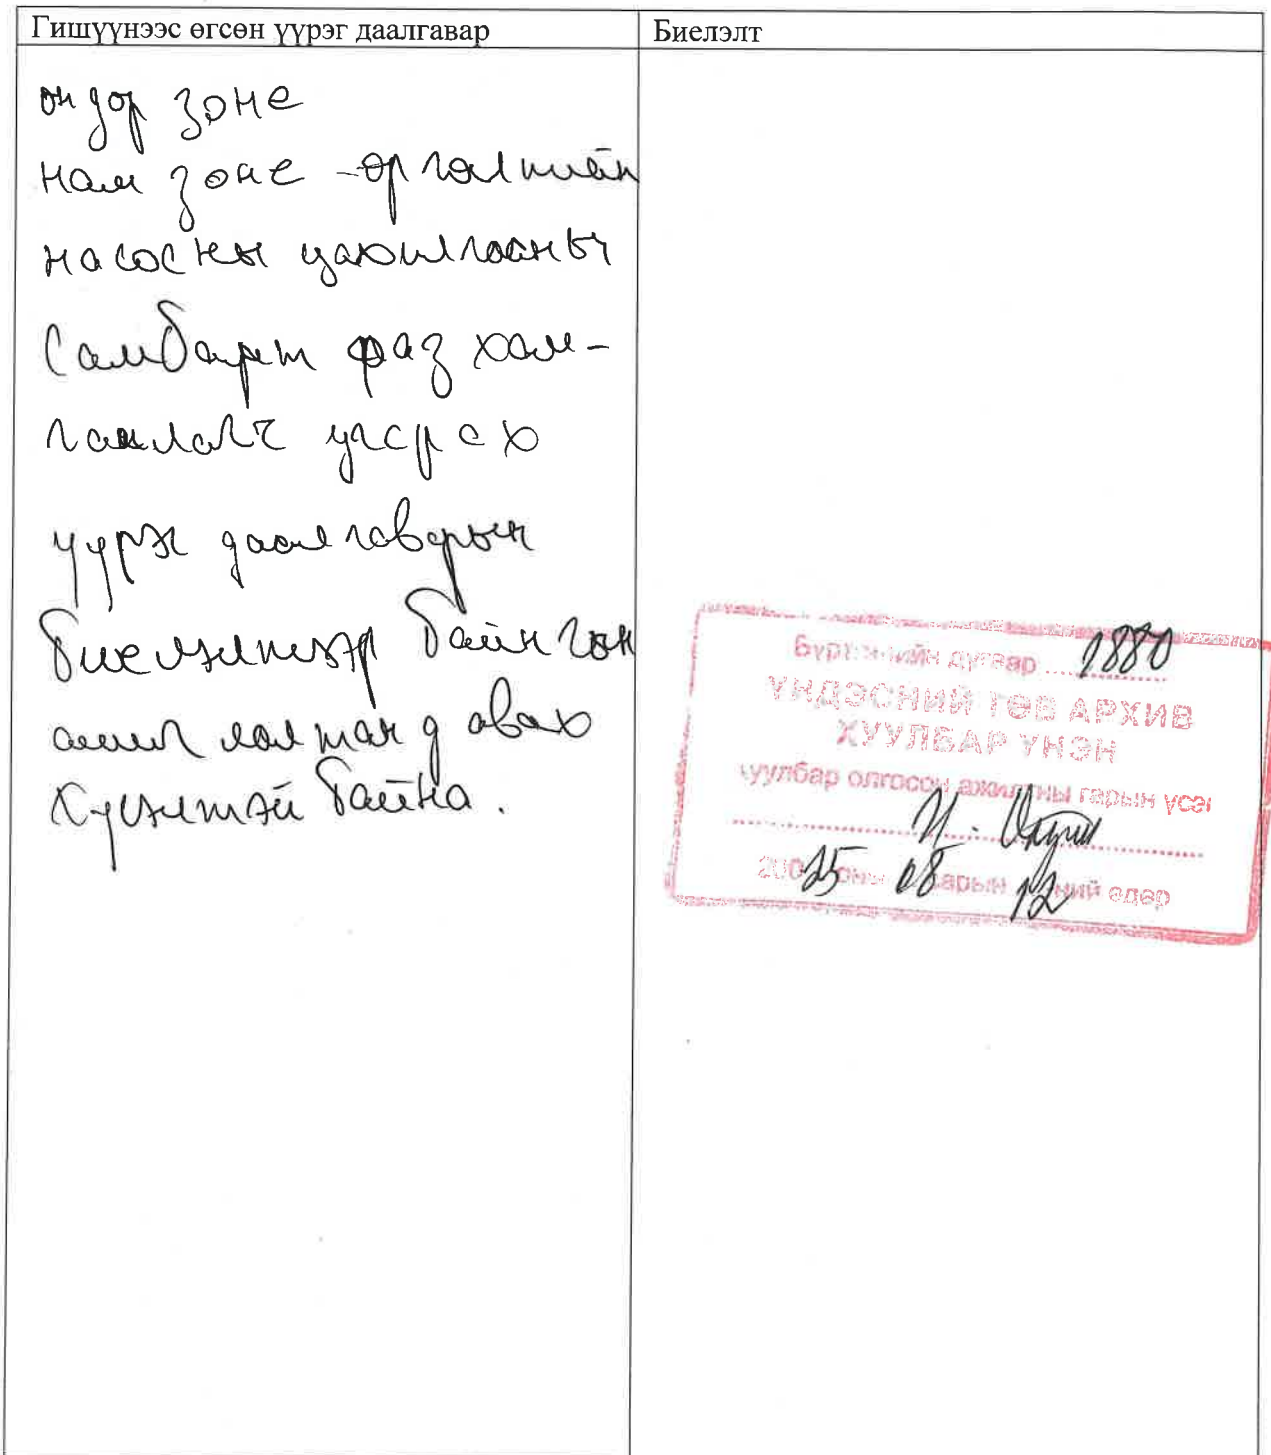 Гишүүнээс өгсөн үүрэг даалгавар
Биелэлт
өндөр зоне
нам зоне өргөлтийн
насосны цахилгааны
самбарт фаз хам-
гаалагч угсрах
үүрэг даалгаврын
биелэлтээр байнгын
ашиглалтанд авах
хүсэлтэй байна.
Бүртгэлийн дугаар 1880
ҮНДЭСНИЙ ТӨВ АРХИВ
ХУУЛБАР ҮНЭН
хуулбар олгосон ажилтны гарын үсэг
2025 оны 08 сарын 12 ний өдөр